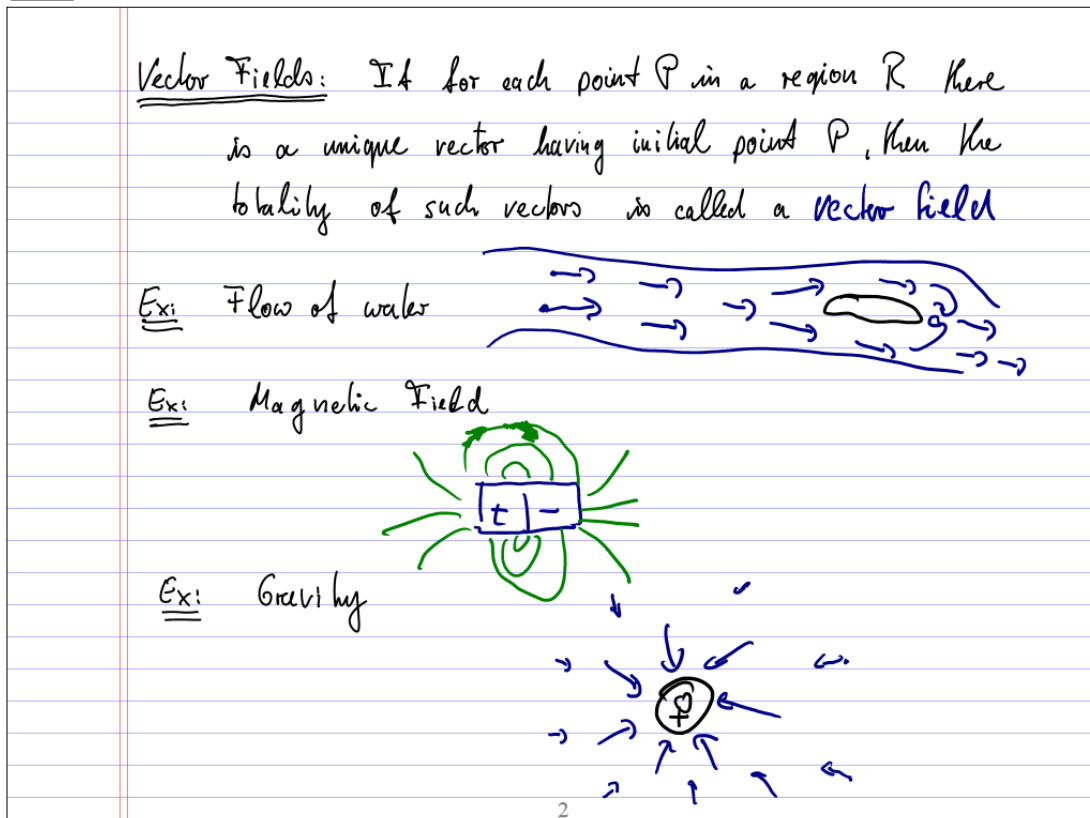 Vector Fields: If for each point P in a region R there
is a unique vector having initial point P, then the
totality of such vectors is called a vector field
Ex: Flow of water
Ex: Magnetic Field
+ -
Ex: Gravity
2